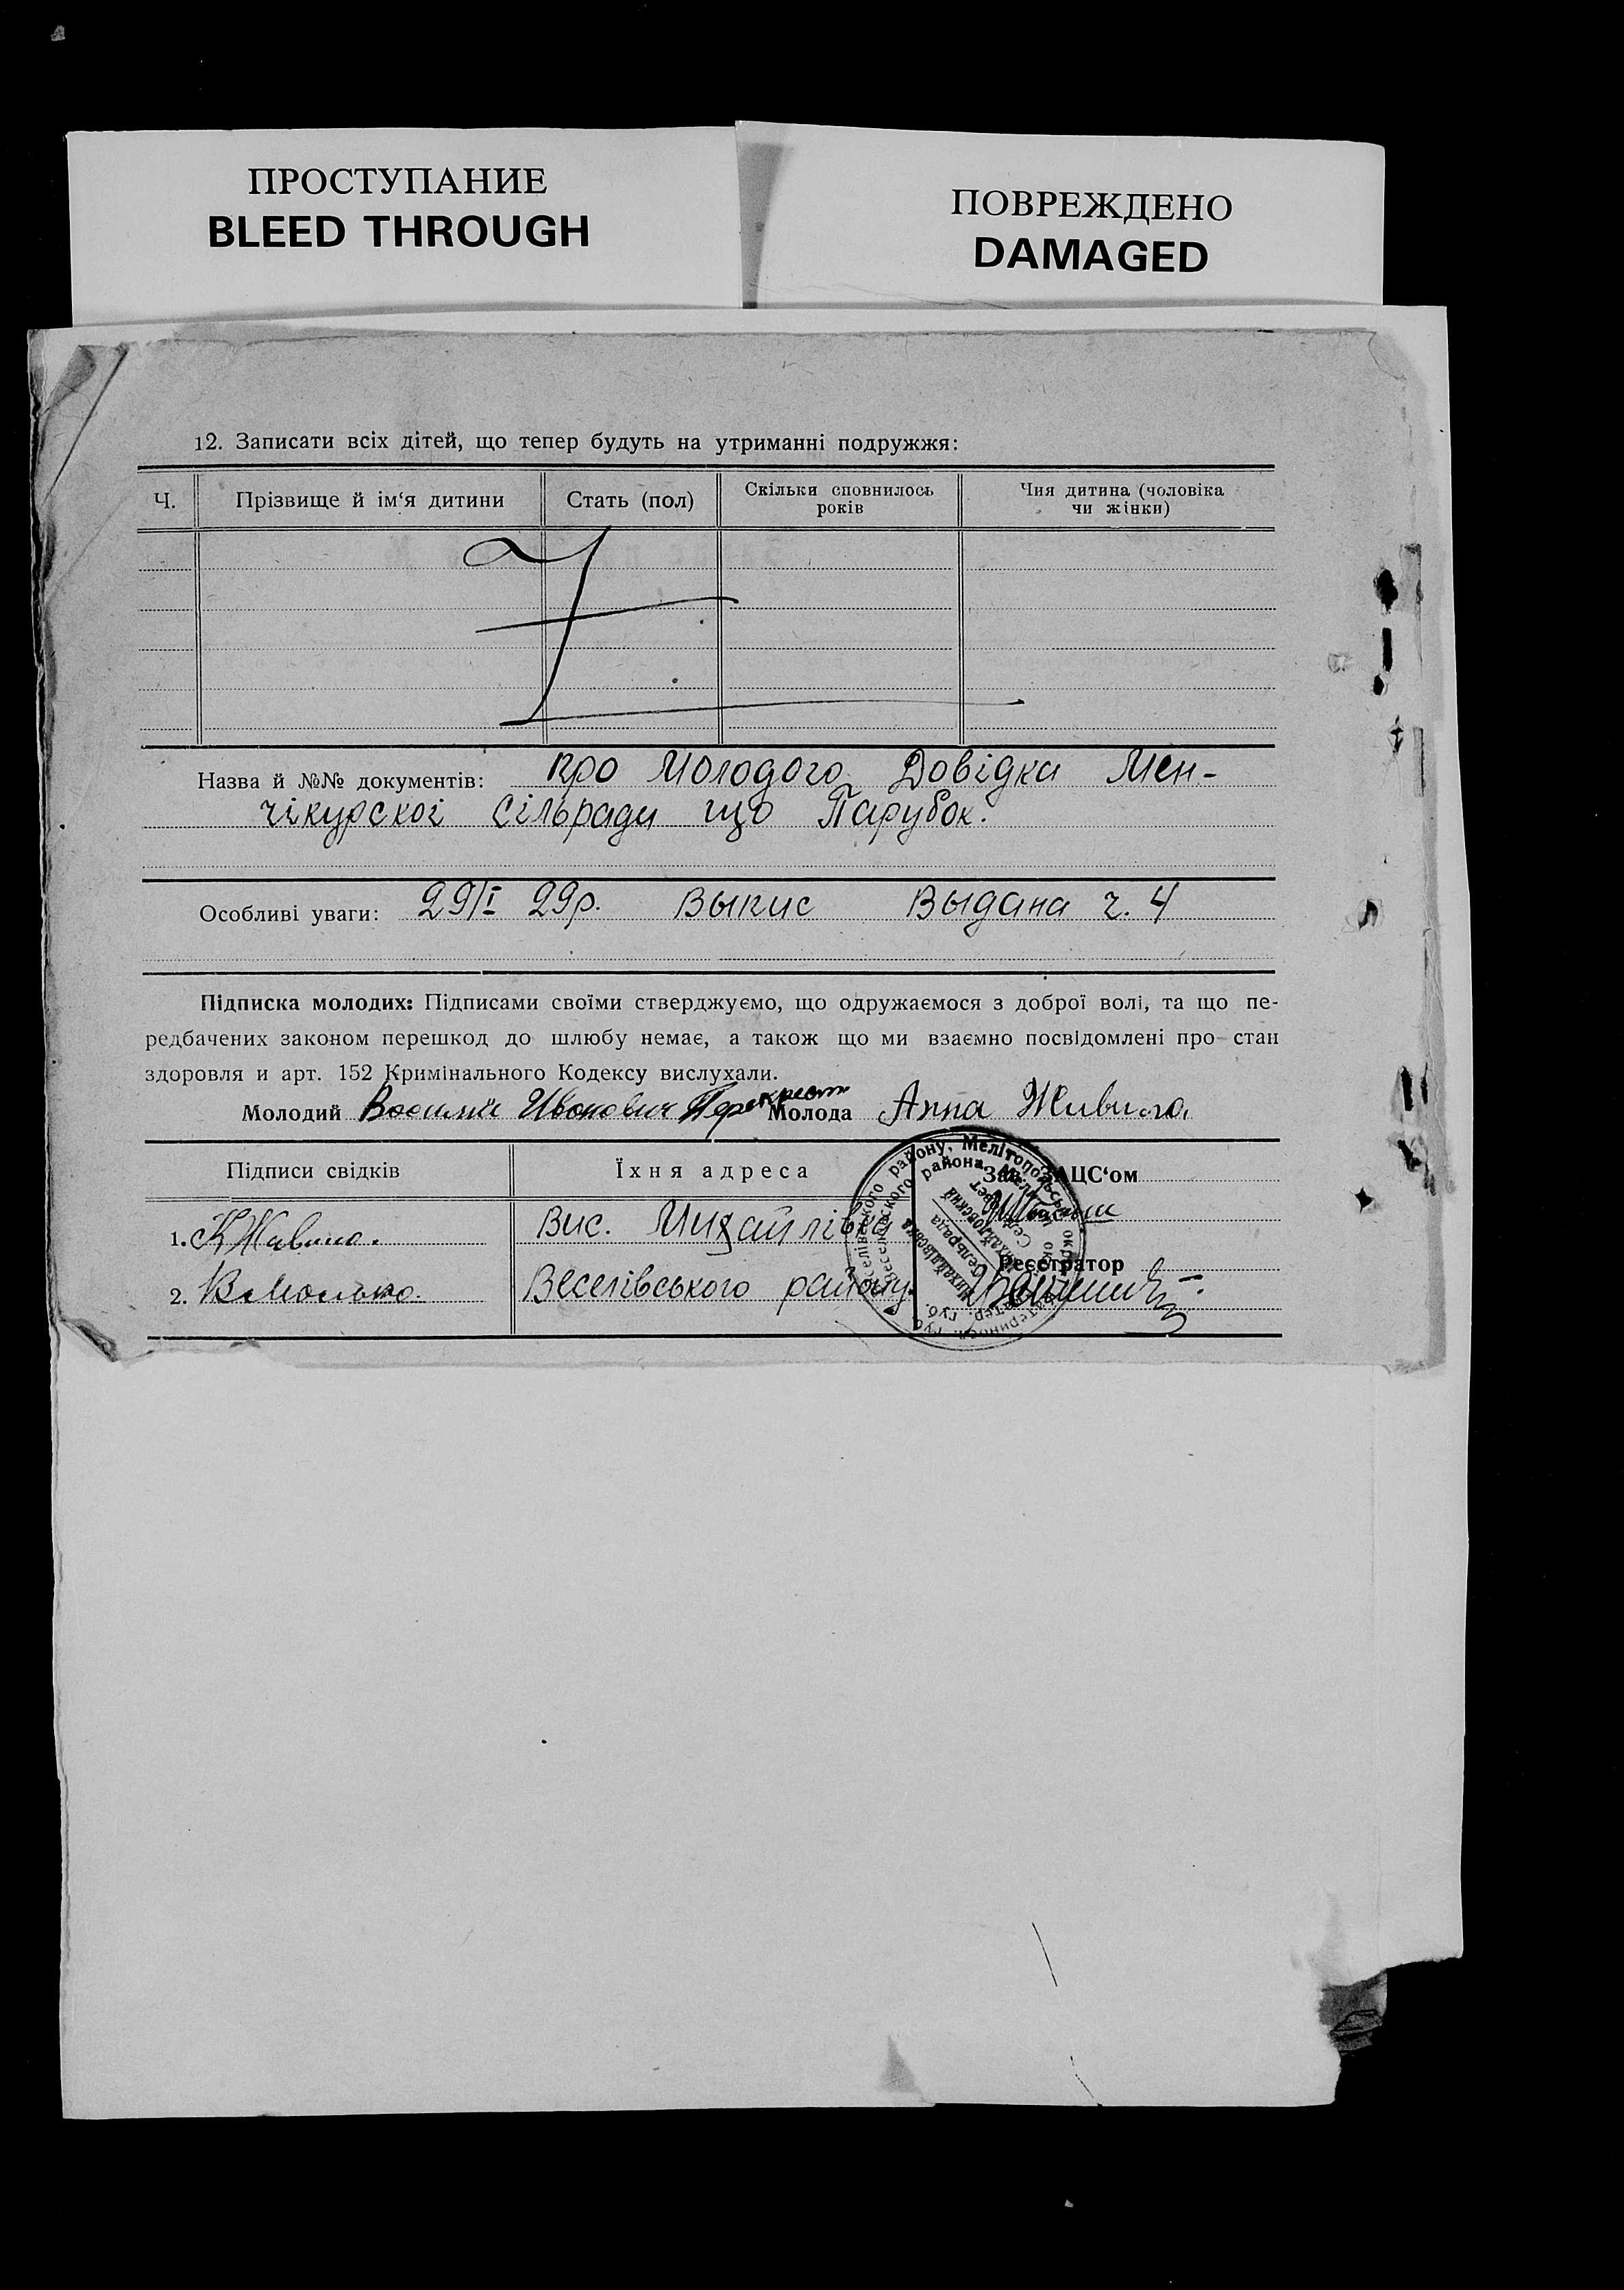 ПРОСТУПАНИЕ
BLEED THROUGH
ПОВРЕЖДЕНО
DAMAGED
12. Записати всіх дітей, що тепер будуть на утриманні подружжя:
Ч. Прізвище й ім‘я дитини Стать (пол) Скільки сповнилось років Чия дитина (чоловіка чи жінки)
Назва й №№ документів: про Молодого Довідка Мен-
чікурскоі сільради що Парубок.
Особливі уваги: 29/I 29р. Выпис Выдана ч. 4
Підписка молодих: Підписами своїми стверджуємо, що одружаємося з доброї волі, та що пе-
редбачених законом перешкод до шлюбу немає, а також що ми взаємно посвідомлені про стан
здоровля и арт. 152 Кримінального Кодексу вислухали.
Молодий Василий Иванович Перекрест Молода Анна Живило.
Підписи свідків Їхня адреса Зав. ЗАЦС‘ом
1. К Живило. Вис. Михайлівка
Реєстратор
2. Веселівського району.
Веселівського району, Мелітопольської окр.
Веселовского района
Михайлівська Сельрада
Михайловский